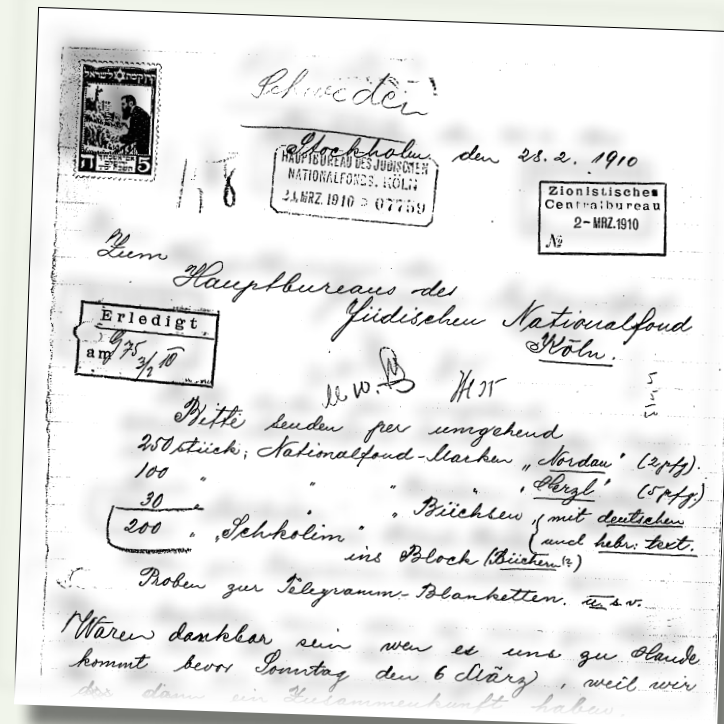 קרן קימת לישראל
ה 5
Schweden
Stockholm. den 28. 2. 1910
HAUPTBUREAU DES JÜDISCHEN
NATIONALFONDS. KÖLN
MRZ. 1910 07759
Zionistisches
Centralbureau
2-MRZ.1910
№
Zum
Hauptbureaus des
Jüdischen Nationalfond
Köln.
Erledigt
am
Bitte senden per umgehend
250 stück; Nationalfond-Marken „Nordau" (2 pfg).
100 " " " " „Herzl" (5 pfg.)
30 " " " Büchsen, (mit deutschen
und hebr: text.
200 " „Schkolim"
ins Block (Büchern!?)
Proben zur Telegramm-Blanketten. u. s. v.
Wären dankbar sein wen es uns zu Hande
kommt bevor Sonntag den 6 März, weil wir
dann ein Zusammenkunft haben.